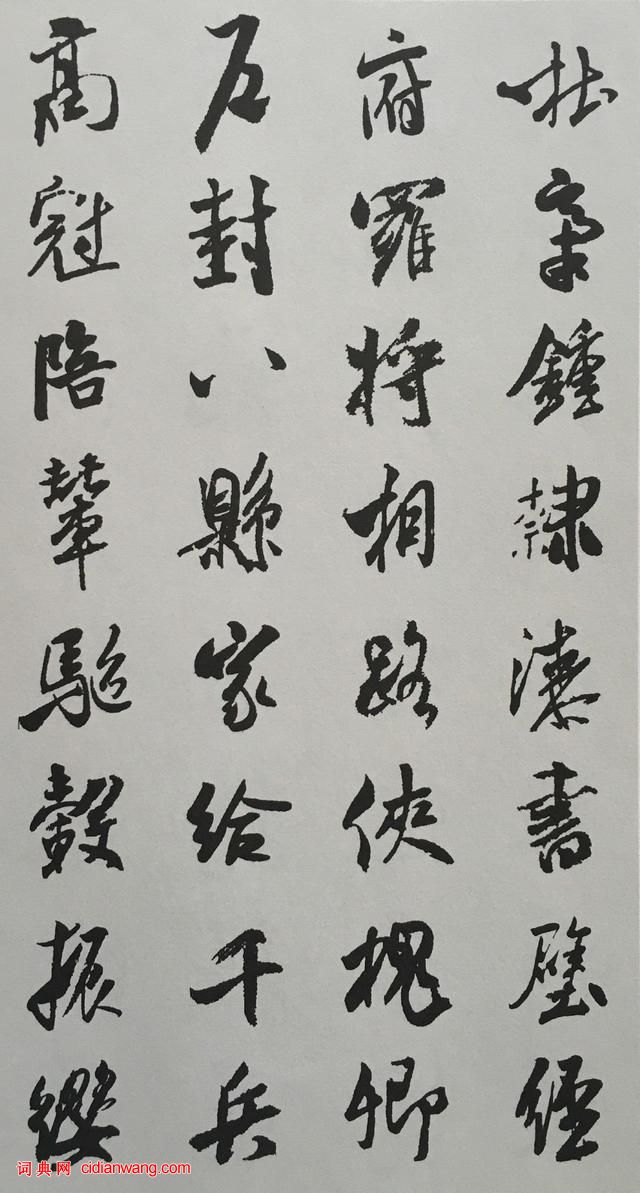 杜稾鍾隸漆書壁經
府羅將相路俠槐卿
戶封八縣家給千兵
高冠陪輦驅轂振纓
词典网 cidianwang.com